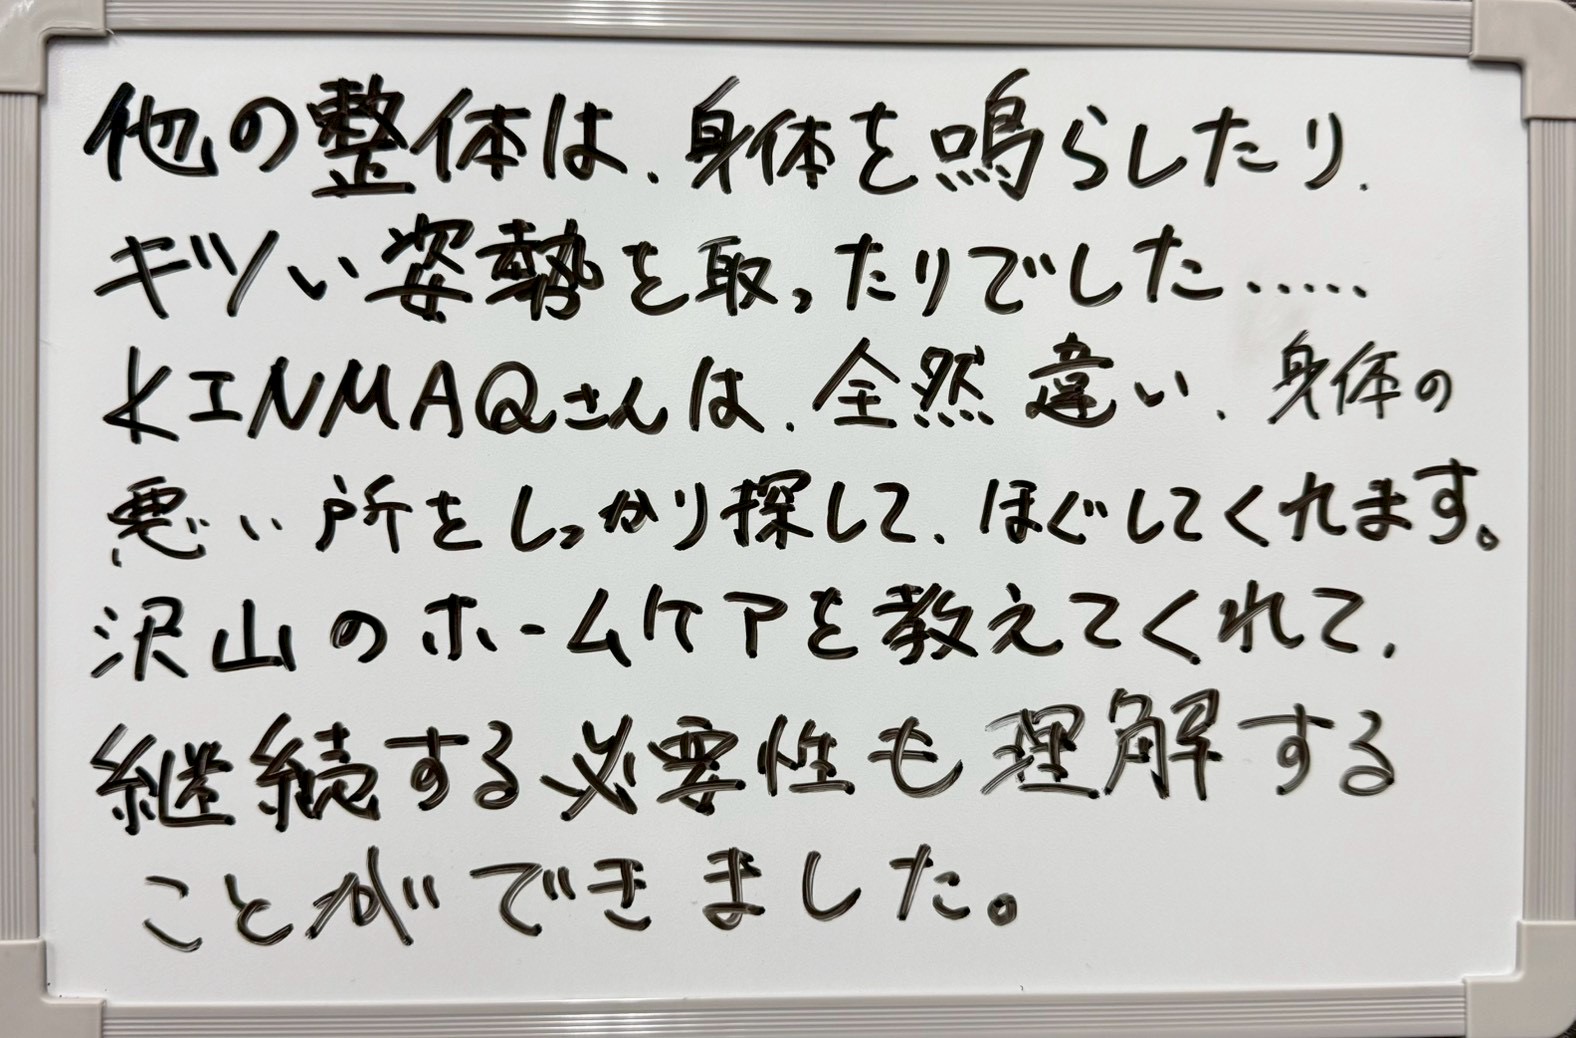 他の整体は、身体を鳴らしたり、
キツい姿勢を取ったりでした.....
KINMAQさんは、全然違い、身体の
悪い所をしっかり探して、ほぐしてくれます。
沢山のホームケアを教えてくれて、
継続する必要性も理解する
ことができました。